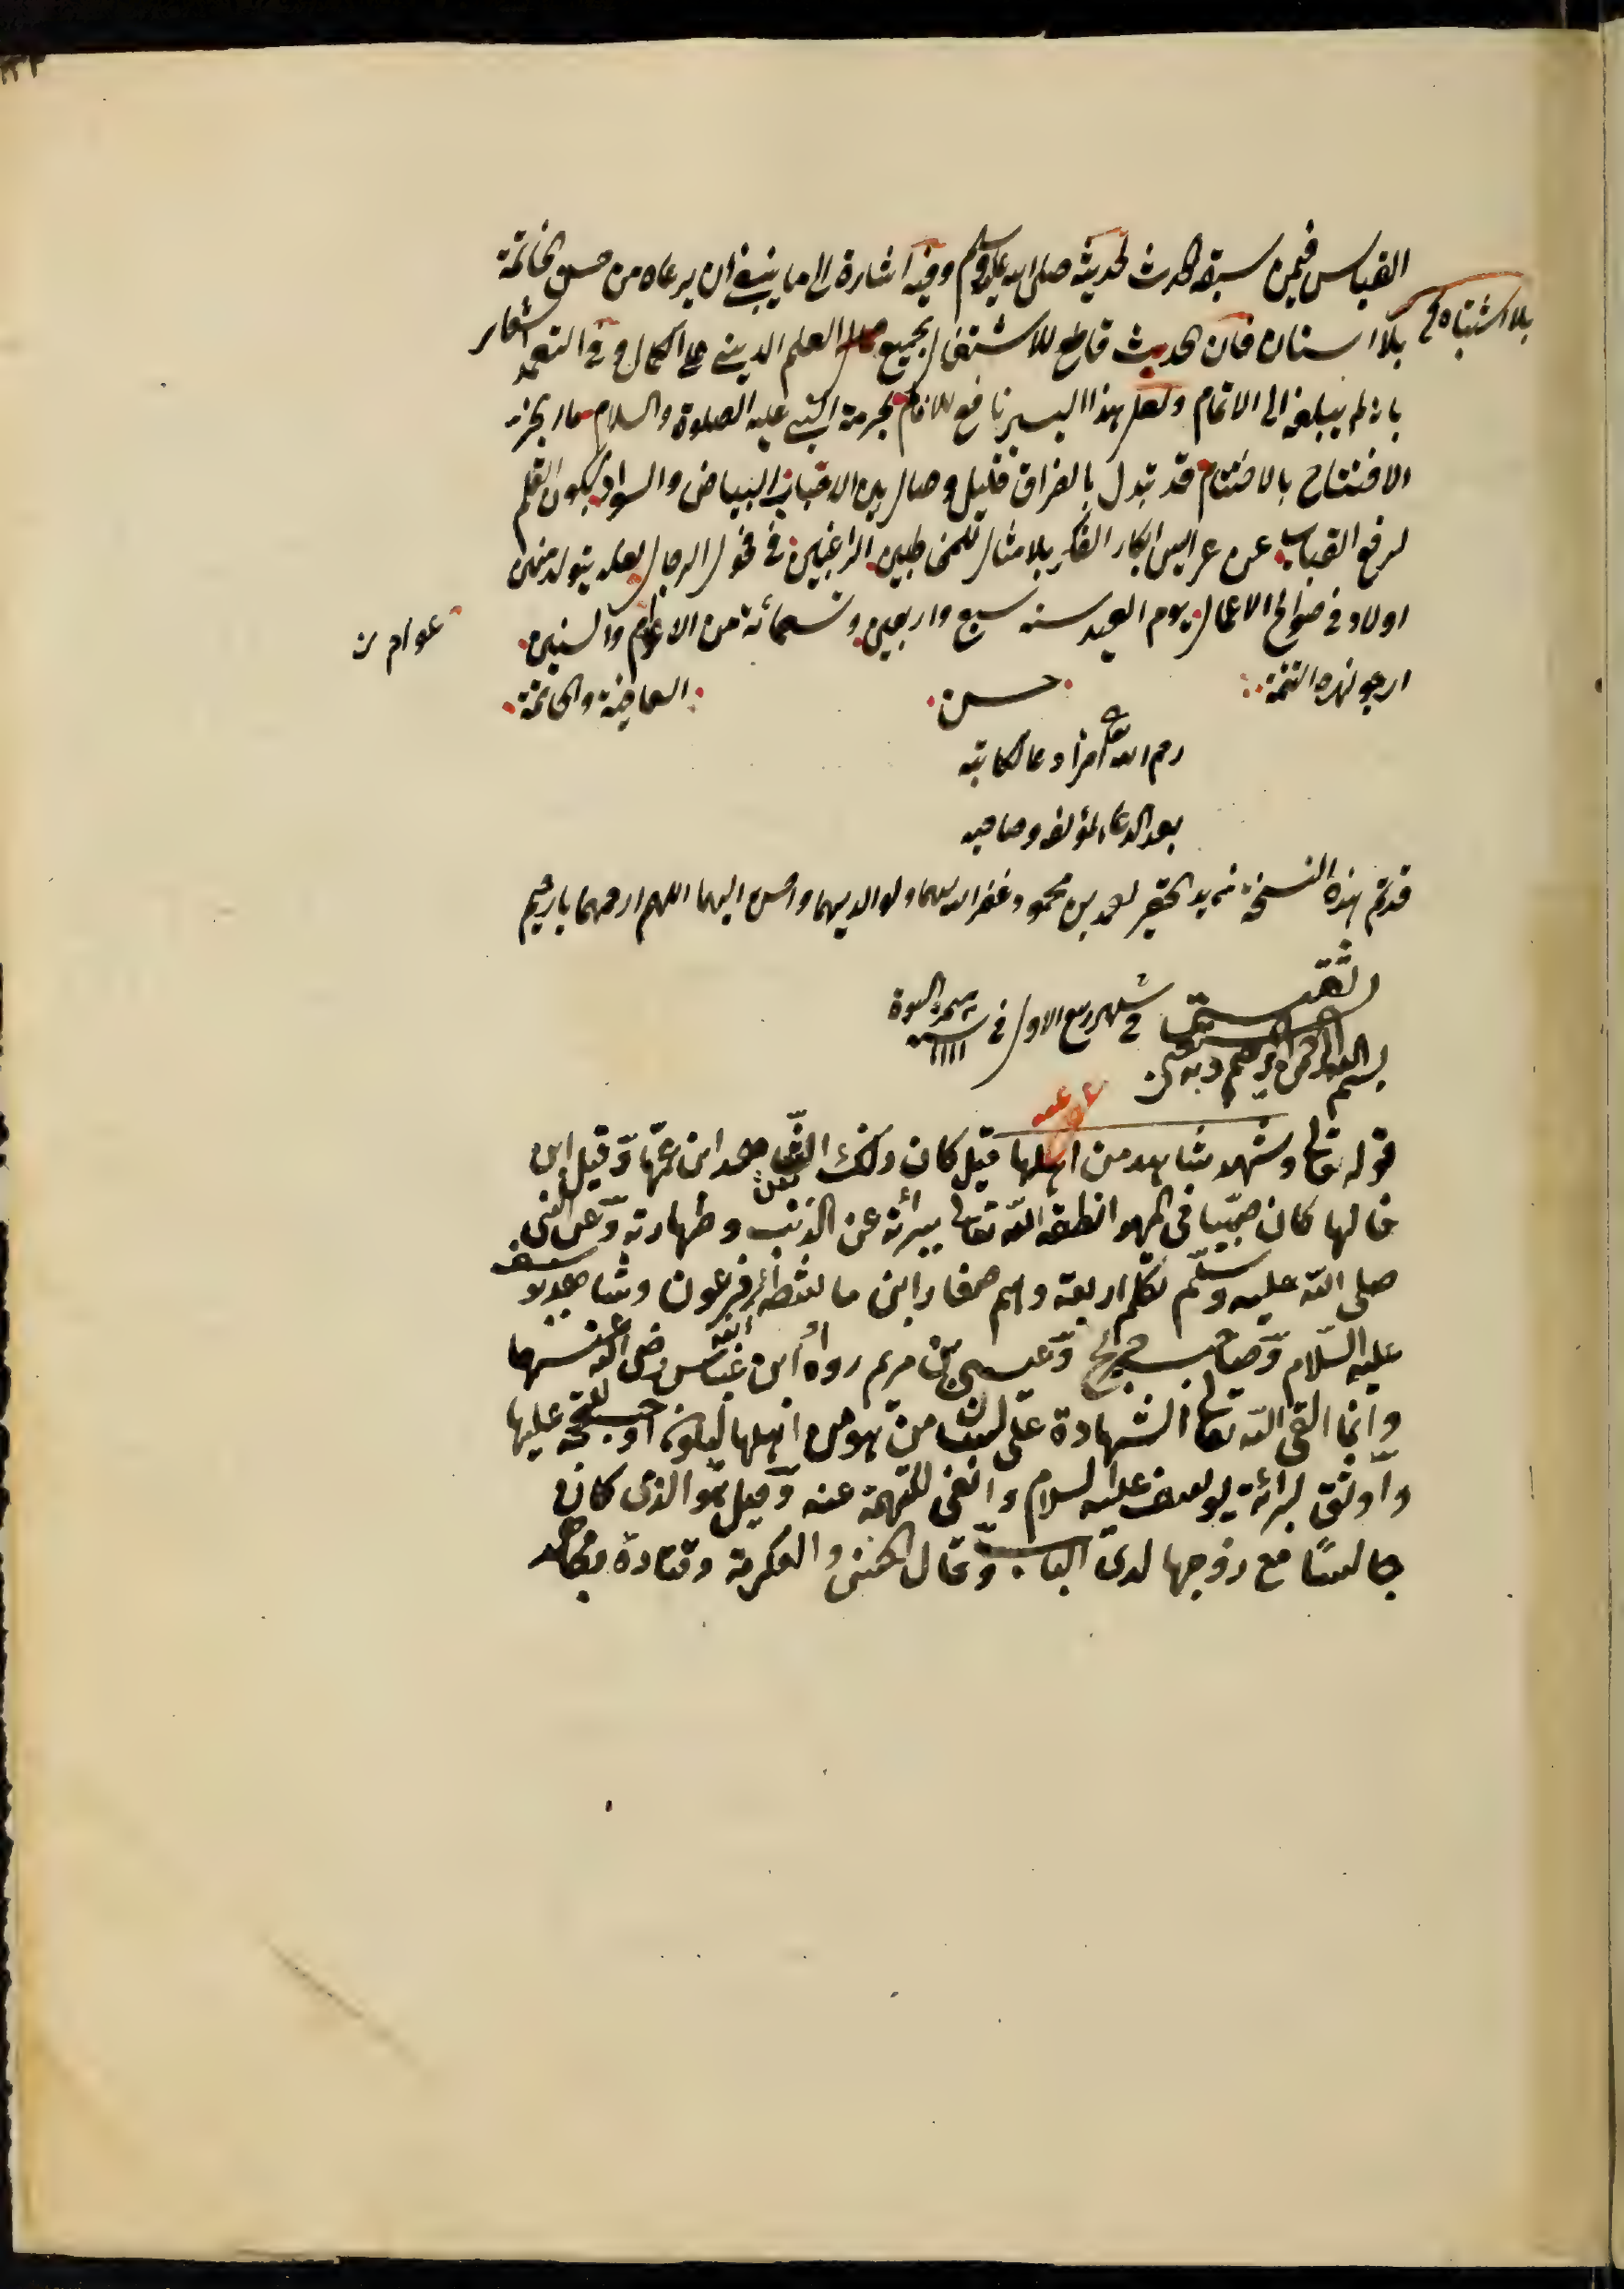 القياس فيمن سبقه الحدث لحديثه صلى الله عليه وسلم وفيه اشارة الى ما ينبغي ان يرعاه من حسن الخاتمة
بلا اشتباه
بلا استنان فان الحديث قاطع للاشتغال بجميع العلم الديني على الكمال وفي التعمد اشعار
بانه لم يبلغ الى الاتمام ولعل هذا اليسير نافع للانام بحرمة النبي عليه الصلوة والسلام
الافتتاح بالاختتام قد تبدل بالفراق قليل وصال بين البياض والسواد بكون القلم
لرفع القباب عن عرايس ابكار الفكر بلا مثال للمخاطبين الراغبين في فحول الرجال لعله يتولد منهن
اولاد في صوالح الاعمال يوم العيد سنه سبع واربعين وتسعمائة من الاعوام والسنين
عوام ن
ارجو لهذه حسن العافية والخاتمة
رحم الله امرأ دعا لكاتبه
بعد الدعاء لمؤلفه وصاحبه
قد تم هذه النسخة من يد الحقير بن محمود غفر الله لهما ولوالديهما واحسن اليهما اللهم ارحمهما يا رحيم
في شهر ربيع الاول في سنه ١١١١
بسم الله الرحمن الرحيم وبه
قوله تعالى وشهد شاهد من اهلها قيل كان ذلك ابن عمها وقيل ابن
خالها كان صبيا في المهد انطقه الله تعالى ببرأته عن الذنب وطهارته وعن النبي
صلى الله عليه وسلم تكلم اربعة وهم صغار ابن ماشطة فرعون وشاهد يوسف
عليه السلام وصاحب جريج وعيسى بن مريم رواه ابن عباس رضي الله عنهما
وانما القى الله تعالى الشهادة على لسان من هو من اهلها ليكون اوجب للحجة عليها
واوثق لبرائة يوسف عليه السلام وانفى للتهمة عنه وقيل هو الذي كان
جالسا مع زوجها لدى الباب وقال الحسن والعكرمة وقتادة ومجاهد